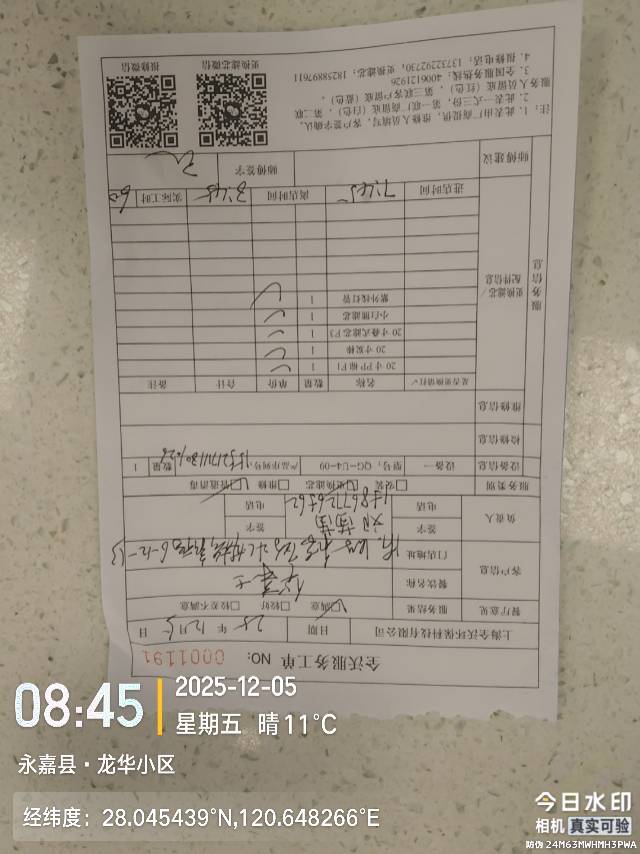 全沃服务工单 NO: 0001191
上海全沃环保科技有限公司 日期 25 年 12 月 5 日
餐厅意见 服务结果 ☑满意 □较好 □较差不满意
客户信息 餐饮名称 华莱士
门店地址
负责人 签字 签字
电话 电话
服务类别 □安装 ☑更换滤芯 □维修 ☑管道消毒
设备信息 设备一 型号: QG-U4-09 产品序列号: 数量 1
检修信息
维修信息
服务信息
更换滤芯/配件信息
是否更换请打✓ 名称 数量 单价 合计 备注
20寸PP棉F1 1
20寸炭棒 1
20寸叠式滤芯F3 1
小白雕滤芯 1
紫外线灯管 1
进店时间 7:45 离店时间 实际工时 60
师傅建议 师傅签字
注:
1. 此表由厂商提供, 维修人员填写, 客户签字确认。
2. 此表一式三份, 第一联厂商留底(白色), 第二联
服务人员留底(红色), 第三联客户留底(蓝色)
3. 全国服务热线: 4006121926
4. 报修电话: 13732292730, 更换滤芯: 18258897611
更换滤芯微信 报修微信
08:45
2025-12-05
星期五 晴 11°C
永嘉县·龙华小区
经纬度: 28.045439°N,120.648266°E
今日水印
相机 真实可验
防伪 24M63MWHMH3PWA